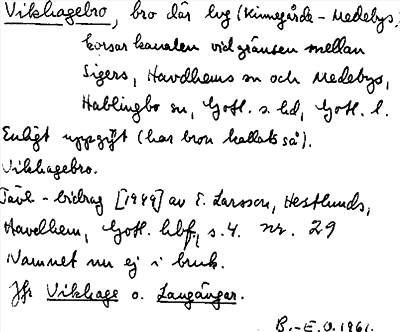 Vikhagebro, bro där lvg (Kinnegårde - Medebys)
korsar kanalen vid gränsen mellan
Sigers, Havdhems sn och Medebys,
Hablingbo sn, Gotl. s. hd, Gotl. l.
Enligt uppgift (har bron kallats så).
Vikhagebro.
Tävl-bidrag [1949] av E. Larsson, Hestlunds,
Havdhem, Gotl. hbf, s. 4. nr. 29
Namnet nu ej i bruk.
Jfr Vikhage o. Laugängar.
B.-E. O. 1961.